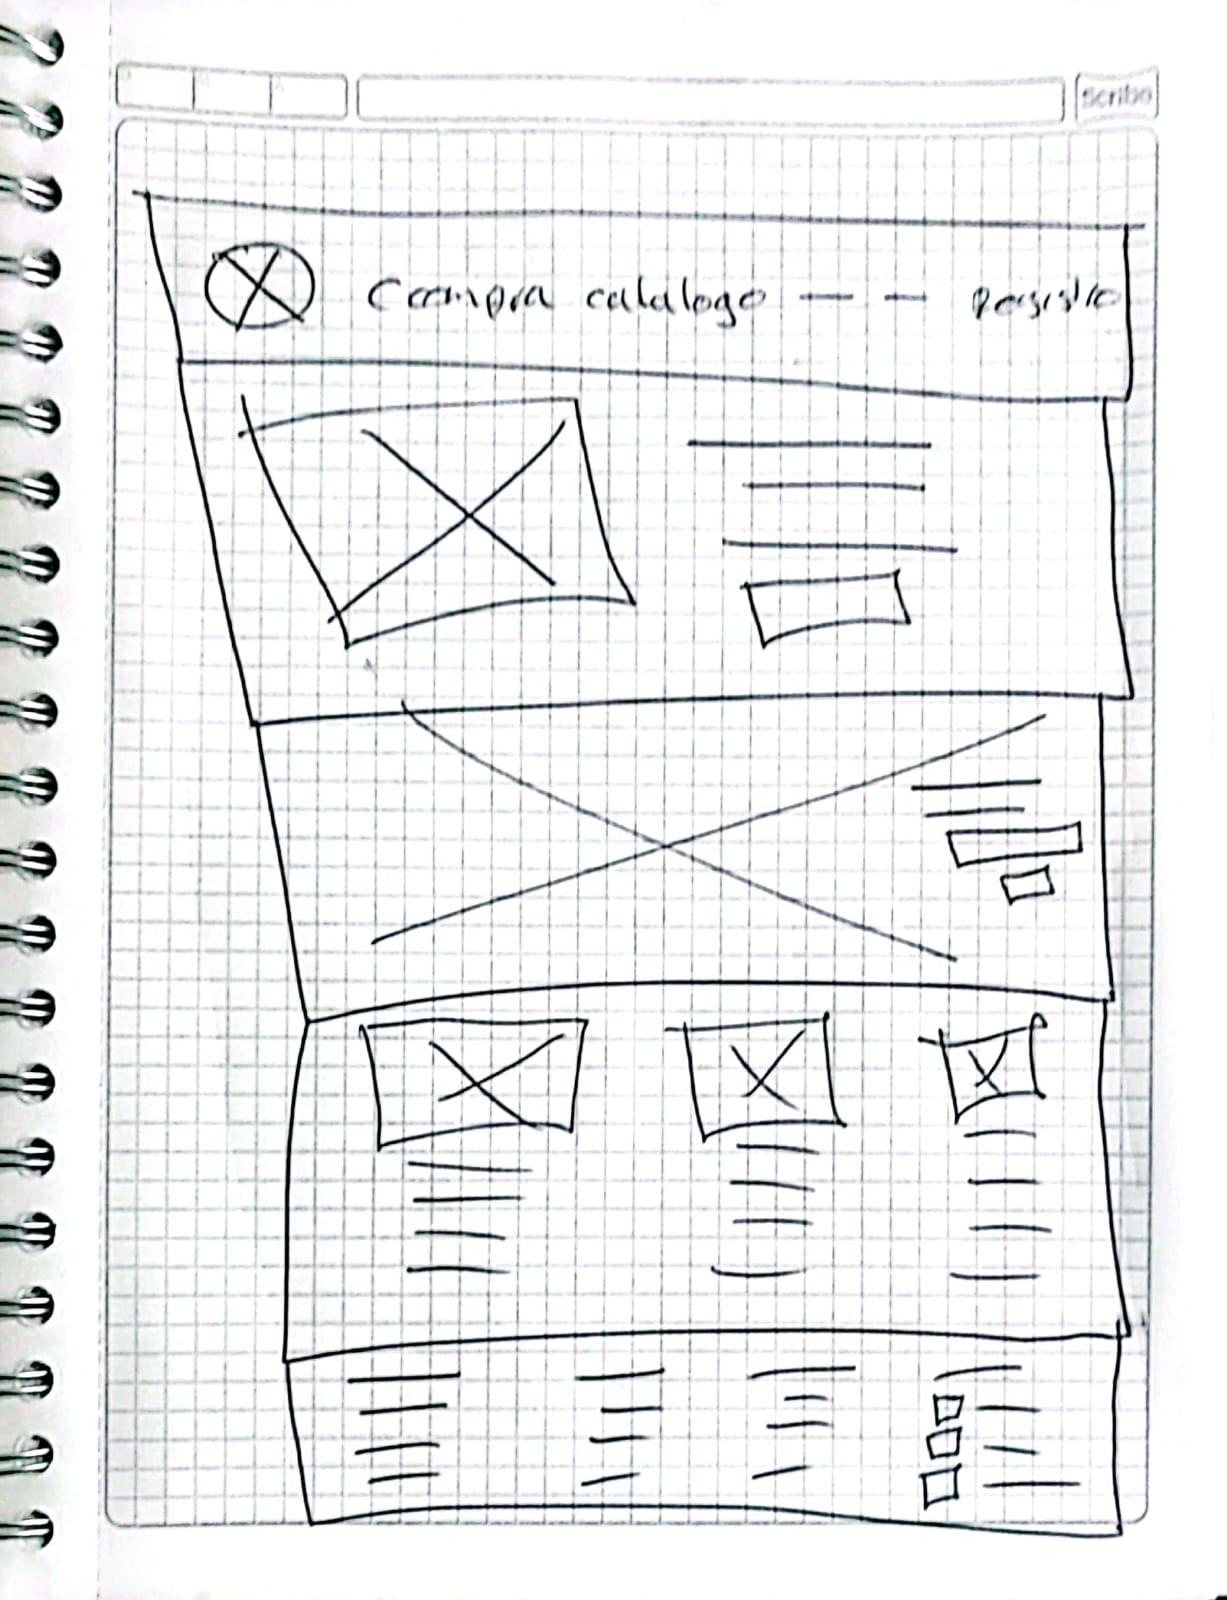 Scribe
Compra catalogo — — Registro